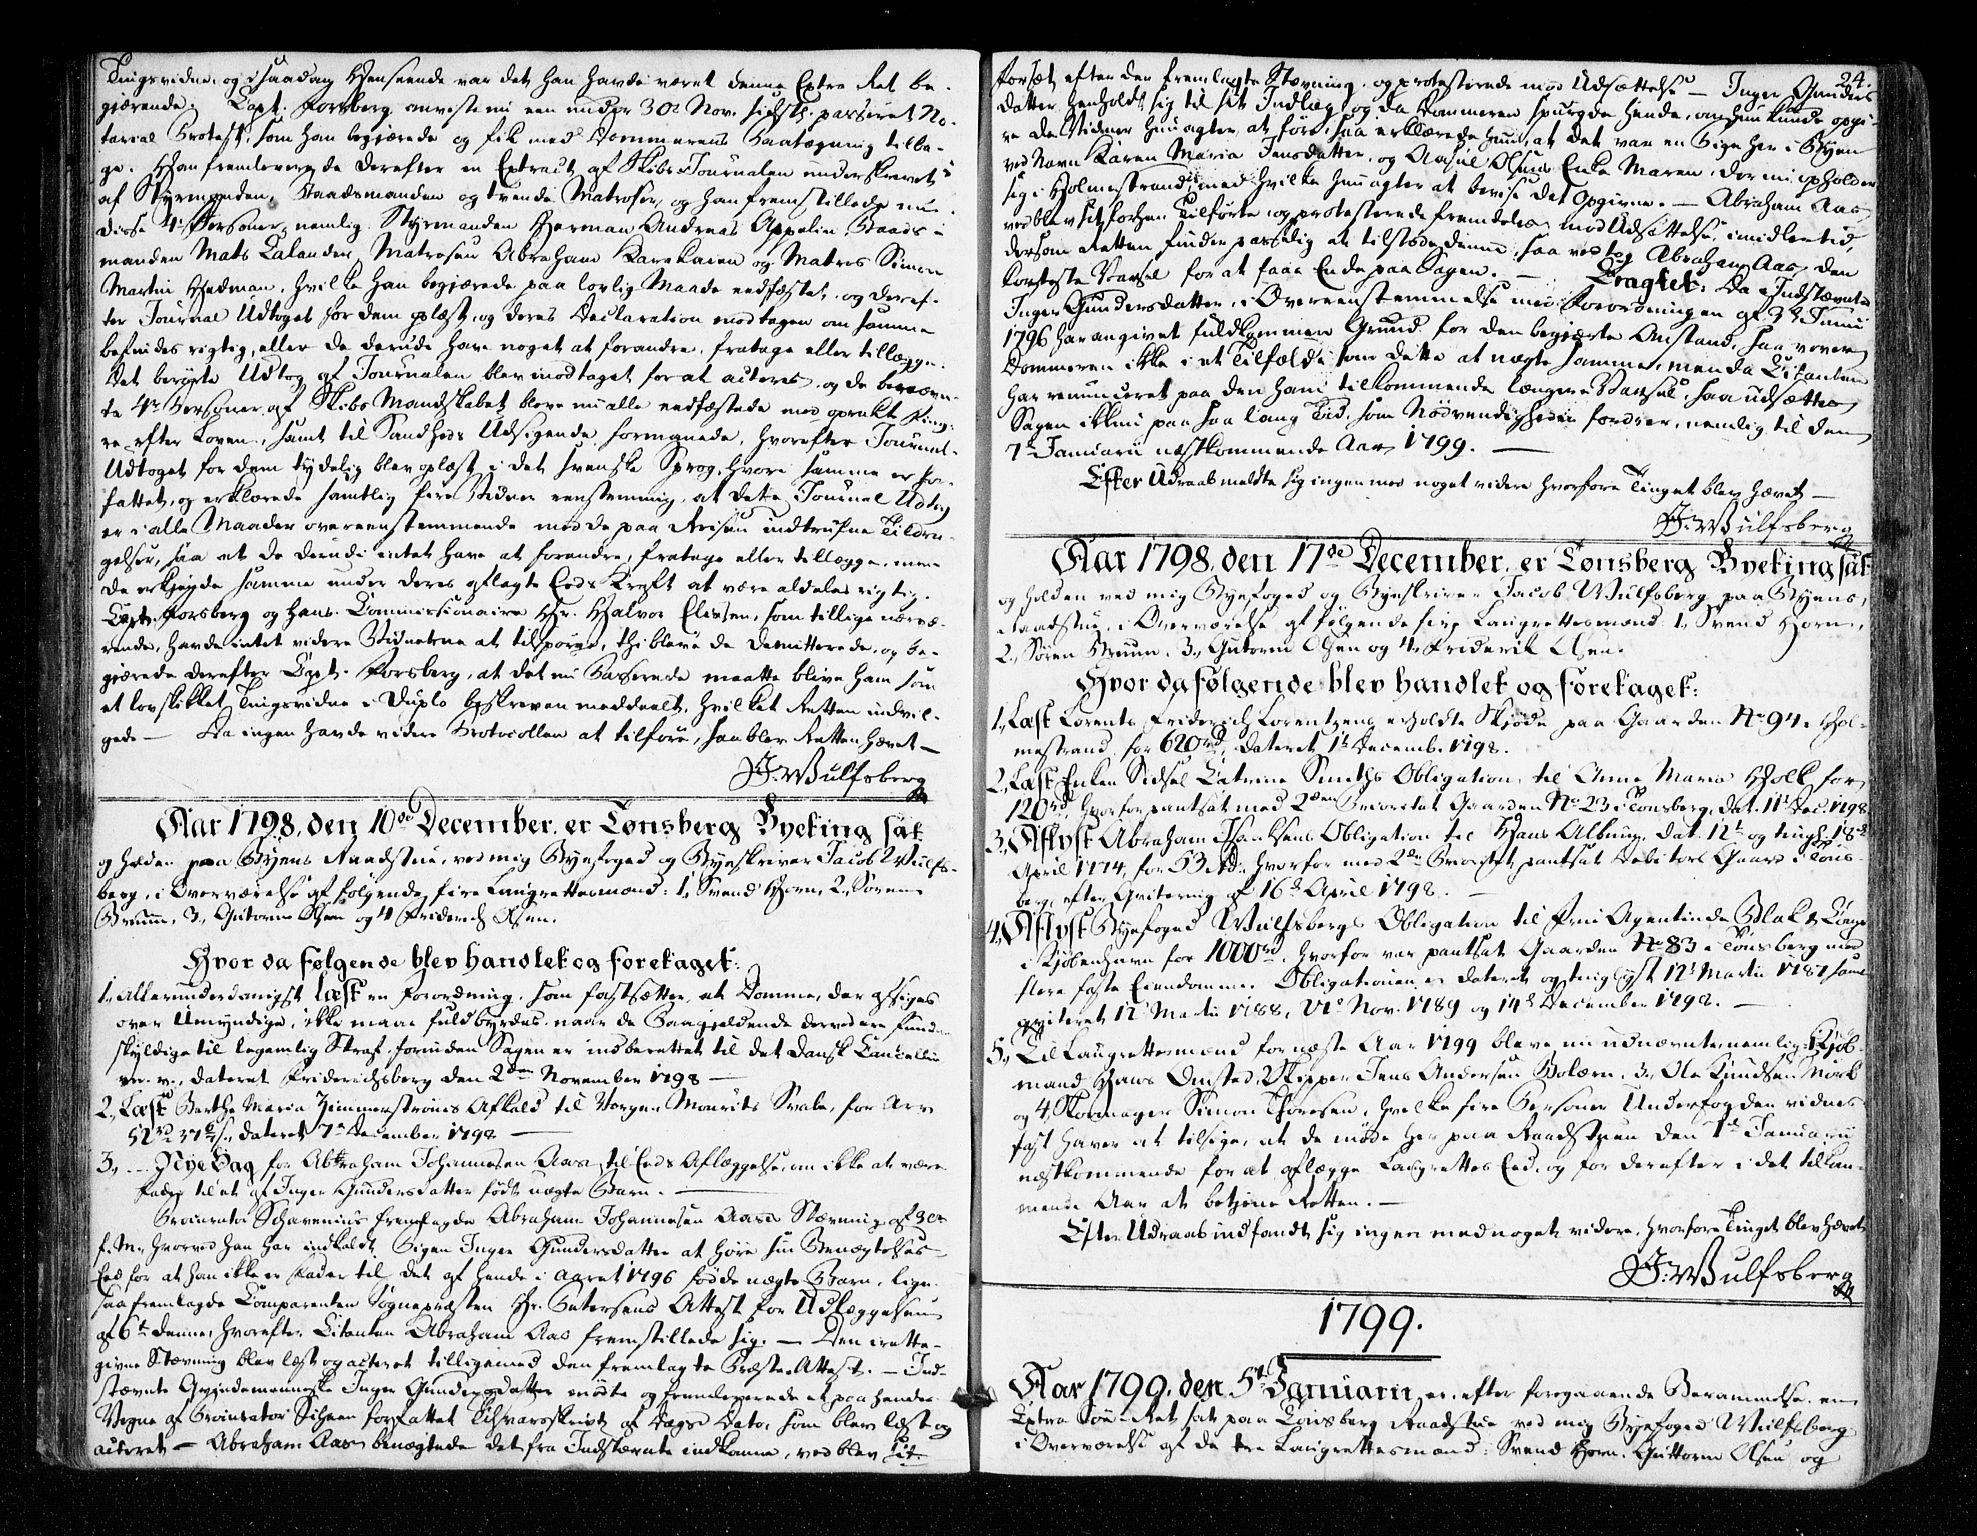 Tingsvidne, og i saadan Henseende var det han havde været denne Extra Ret be-
gjærende. Capt. Forsberg anviste nu een under 30te Nov. sidstl. passeret No-
tarial Protest, som han begjærede og fik med Dommerens Paategning tilba-
ge. Han fremleverede derefter en Extract af Skibs-Journalen underskrevet
af Styrmanden, Baadsmanden og tvende Matroser, og han fremstillede nu
disse 4re Personer, nemlig Styrmanden Herman Andreas Appelin, Baads-
manden Mats Calander, Matrosen Abraham Karekaien og Matros Simon
Martin Hedman, hvilke han begjærede paa lovlig Maade eedfæstet, og deref-
ter Journal Udtoget for dem oplæst, og deres Declaration modtagen om samme
befindes rigtig, eller de derudi have noget at forandre, fratage eller tillægge.
Det berørte Udtog af Journalen blev modtaget for at acteres, og de benævn-
te 4re Personer af Skibs Mandskabet bleve nu alle eedfæstede med oprakt Fing-
re efter Loven, samt til Sandheds Udsigende formanede, hvorefter Journal-
Udtoget for dem tydelig blev oplæst i det svenske Sprog, hvori samme er for-
fattet, og erklærede samtlig fire Vidner eenstemmig, at dette Journal Udtog
er i alle Maader overeenstemmende med de paa Reisen indtrufne Tildra-
gelser, saa at de derudi intet have at forandre, fratage eller tillægge, men
de erkjende samme under deres aflagte Eeds Kraft at være aldeles rigtig.
Capt. Forsberg og hans Commissionaire Hr. Halvor Eliesen, som tillige nærvæ-
rende, havde intet videre Vidnerne at tilspørge, thi bleve de demitterede, og be-
gjærede derefter Capt. Forsberg, at det nu Passerede maatte blive ham som
et lovskikket Tingsvidne i Duplo beskreven meddeelt, hvilket Retten indvil-
gede — Da ingen havde videre Protocollen at tilføre, saa blev Retten hævet —
J. Wulfsberg
Aar 1798, den 10de December, er Tønsberg Byeting sat
og holden paa Byens Raadstue, ved mig Byefoged og Byeskriver Jacob Wulfs-
berg, i Overværelse af følgende fire Laugrettesmænd: 1, Svend Horn, 2, Søren
Bruun, 3, Gutorm Olsen og 4 Friderich Olsen.
Hvor da følgende blev handlet og foretaget:
1, Allerunderdanigst læst en Forordning, som fastsætter, at Domme, der afsiges
over Umyndige, ikke maae fuldbyrdes, naar de Paagjeldende derved ere funden
skyldige til legemlig Straf, forinden Sagen er indberettet til det danske Cancellie
m. v., dateret Friderichsberg den 2den November 1798 —
2, Læst Berthe Maria Zimmerstrøms Afkald til Børgen Mourits Svale, for Arv
51rd 37⅔ s., dateret 7de December 1798 —
3, ... Nye Sag for Abraham Johannesen Aas, til Eeds Aflæggelse, om ikke at være
Fader til et af Inger Gundersdatter født uægte Barn. —
Procurator Schavenius fremlagde Abraham Johannesen Aases Stævning af 3de
f. M., hvorved han har indkaldt Pigen Inger Gundersdatter at høre sin Benægtelses-
Eed for at han ikke er Fader til det af hende i Aaret 1796 fødde uægte Barn, lige-
saa fremlagde Comparenten Sognepræsten Hr. Petersens Attest for Udlæggelsen
af 6te denne, hvorefter Citanten Abraham Aas fremstillede sig. — Den irette-
givne Stævning blev læst og acteret tilligemed den fremlagte Præste-Attest. — Ind-
stævnte Qvindemenneske Inger Gundersdatter mødte og fremleverede et paa hendes
Vegne af Procurator Scheen forfattet Tilsvarsskrivt af Dags Dato, som blev læst og
acteret — Abraham Aas benægtede det fra Indstævnte indkomne, ved blev sit
24.
forsæt efter den fremlagte Stævning, og protesterede mod Udsættelse — Inger Gunders
datter henholdt sig til sit Indlæg, og da Dommeren spurgde hende, om hun kunde opgi-
ve de Vidner hun agter at føre, saa erklærede hun, at det var en Pige her i Byen
ved Navn Karen Maria Jensdatter, og Aasul Olsens Enke Maren, der nu opholder
sig i Holmestrand, med hvilke hun agter at bevise det Opgivne. — Abraham Aas
vedblev sit forhen Tilførte og protesterede fremdeles mod Udsættelse, imidlertid
dersom Retten finder passelig at tilstede denne, saa vedtog Abraham Aas den
korteste Varsel for at faae Ende paa Sagen. — Eragtet: Da Indstævnte
Inger Gundersdatter i Overeenstemmelse med Forordningen af 3de Junii
1796 har angivet fuldkommen Grund for den begjærte Anstand, saa vover
Dommeren ikke i et Tilfælde som dette at nægte samme, men da Citanten
har renunceret paa den ham tilkommende længere Varsel, saa udsættes
Sagen ikkun paa saa lang Tid, som Nødvendigheden fordrer, nemlig til den
7de Januarii næstkommende Aar 1799. —
Efter Udraab meldte sig ingen med noget videre hvorfore Tinget blev hævet —
J. Wulfsberg
Aar 1798, den 17de December, er Tønsberg Byeting sat
og holden ved mig Byefoged og Byeskriver Jacob Wulfsberg paa Byens
Raadstue, i Overværelse af følgende fire Laugrettesmænd: 1, Svend Horn,
2, Søren Bruun, 3, Gutorm Olsen og 4re Friderik Olsen.
Hvor da følgende blev handlet og foretaget:
1, Læst Lorents Friderich Lorentzens erholdte Skjøde paa Gaarden No 94 i Hol-
mestrand for 620rd, dateret 1te Decembr. 1798.
2, Læst Enken Sidsel Catrine Smiths Obligation til Anne Maria Holk for
120rd, hvorfor pantsat med 2den Prioritet Gaarden No 23 i Tønsberg, dat. 11te Dec. 1798
3, Aflyst Abraham Isachsens Obligation til Hans Albuin, dat. 12te og tingl. 18de
April 1774, for 53 rd, hvorfor med 2den Prioritet pantsat Debitors Gaard i Tøns-
berg, efter Qvitering af 16de April 1798. —
4, Aflyst Byefoged Wulfsbergs Obligation til Frue Agentinde Black & Comp
i Kjøbenhavn for 1000rd, hvorfor var pantsat Gaarden No 83 i Tønsberg med
flere faste Eiendomme. Obligationen er dateret og tinglyst 12te Martii 1787 samt
qviteret 12 Martii 1788, 21de Nov. 1789 og 14de December 1798. —
5, Til Laugrettesmænd for næste Aar 1799 bleve nu udnævnte nemlig: 1, Kjøb-
mand Hans Omsted, 2, Skipper Jens Andersen Bolærn, 3, Ole Knudsen Mørk
og 4, Skomager Simon Thoresen, hvilke fire Personer Underfogden vidnes-
fast haver at tilsige, at de møde her paa Raadstuen den 7de Januarii
næstkommende for at aflægge Laugrettes Eed, og for derefter i det tilkom-
mende Aar at betjene Retten. —
Efter Udraab indfandt sig ingen med noget videre, hvorfore Tinget blev hævet
J. Wulfsberg
1799.
Aar 1799, den 5te Januarii, er efter foregaaende Berammelse en
Extra Søe-Ret sat paa Tønsberg Raadstue ved mig Byefoged Wulfsberg
i Overværelse af de tre Laugrettesmænd: Svend Horn, Guttorm Olsen og